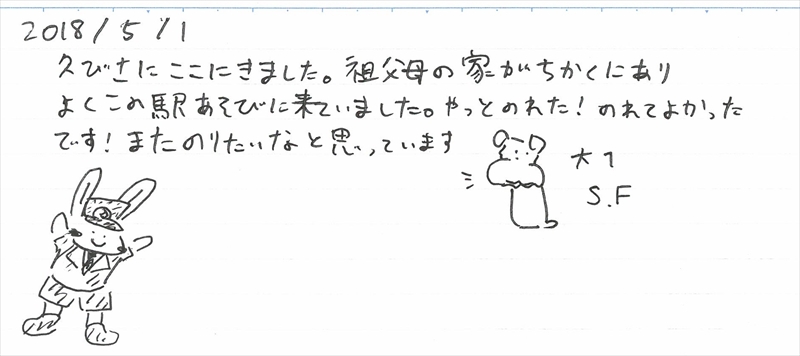 2018/5/1
久びさにここにきました。祖父母の家がちかくにあり
よくこの駅あそびに来ていました。やっとのれた!のれてよかった
です!またのりたいなと思っています
大1
S.F